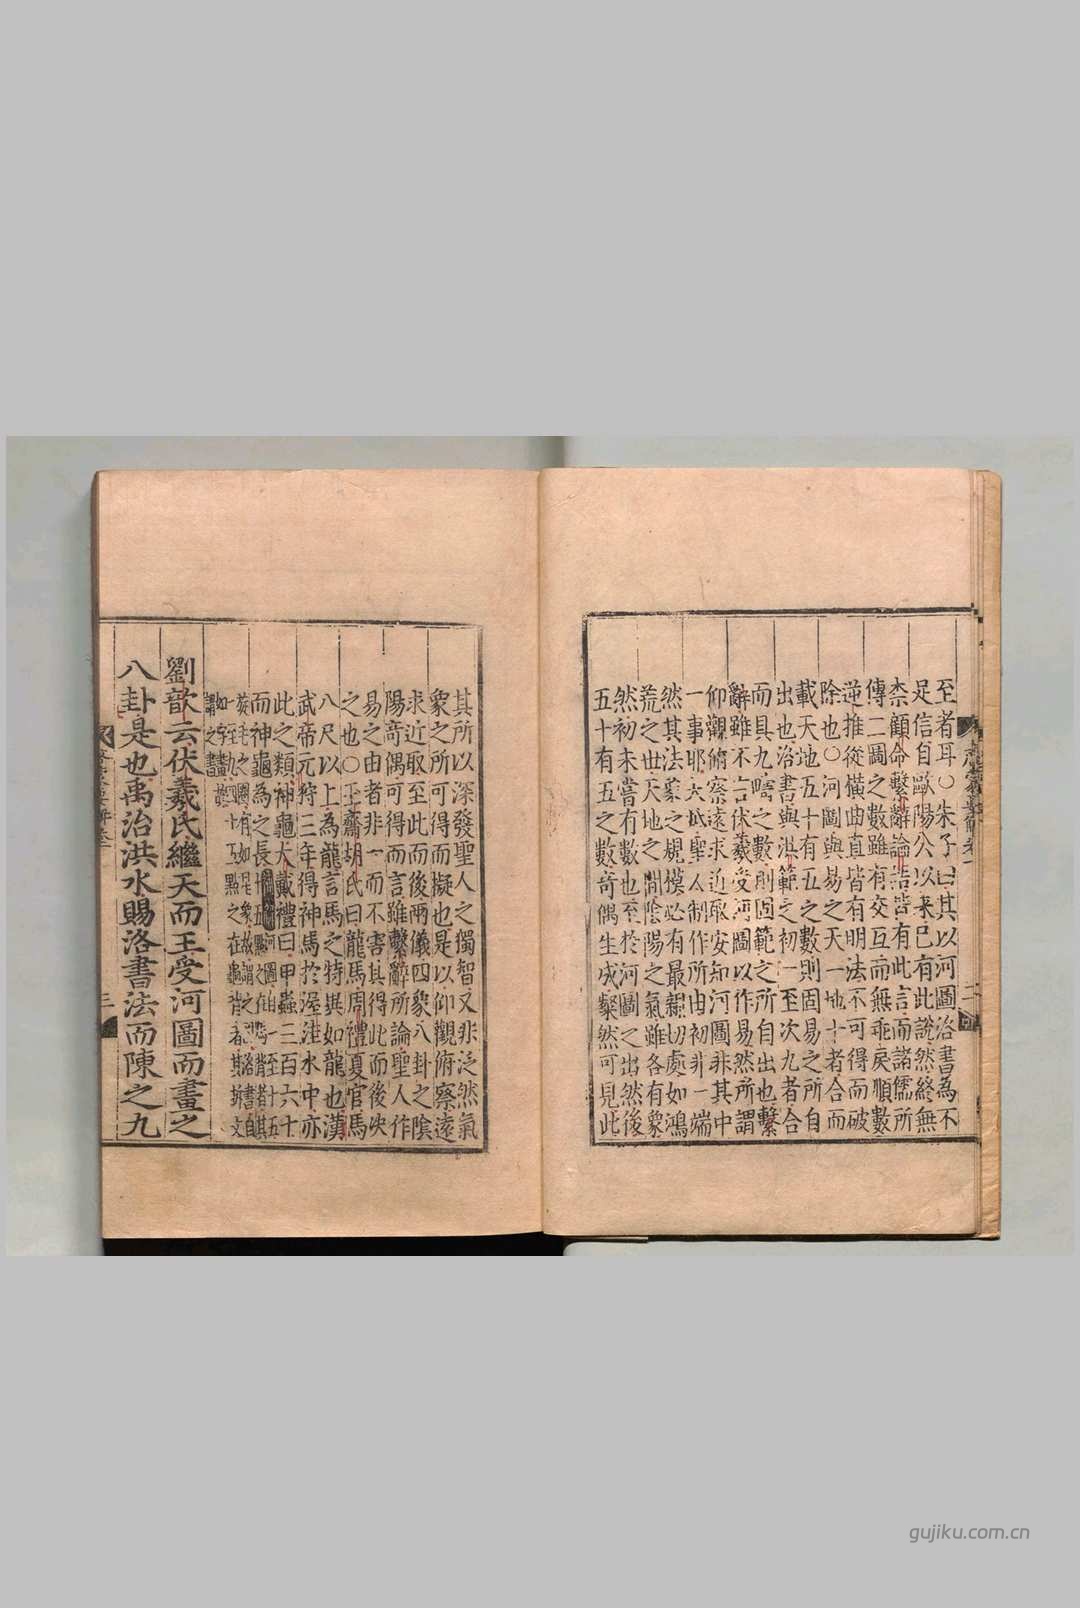 至者耳○朱子曰其以河圖洛書為不
足信自歐陽公以来已有此說然終無
柰顧命繫辭論語皆有此言而諸儒所
傳二圖之數雖有交互而無乖戾順數
逆推從橫曲直皆有明法不可得而破
除也○河圖與易之天一地十者合而
載天地五十有五之數則固易之所自
出也洛書與洪範之初一至次九者合
而具九疇之數則固範之所自出也繫
辭雖不言伏羲受河圖以作易然所謂
仰觀俯察遠求近取安知河圖非其中
一事耶大抵聖人制作所由初非一端
然其法象之規模必有最親切處如鴻
荒之世天地之間陰陽之氣雖各有象
然初未嘗有數也至於河圖之出然後
五十有五之數奇偶生成粲然可見此
其所以深發聖人之獨智又非泛然氣
象之所可得而擬也是以仰觀俯察遠
求近取至此而後兩儀四象八卦之陰
陽奇偶可得而言雖繫辭所論聖人作
易之由者非一而不害其得此而後决
之也○玉齋胡氏曰龍馬周禮夏官馬
八尺以上為龍言馬之特異如龍也漢
武帝元狩三年得神馬於渥洼水中亦
此之類神龜大戴禮曰甲蟲三百六十
而神龜為之長
劉歆云伏羲氏繼天而王受河圖而畫之
八卦是也禹治洪水賜洛書法而陳之九
三
gujiku.com.cn